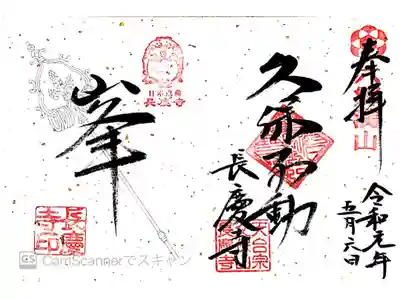 奉拝
令和元年
五月六日
不動
長慶寺
天台宗
長慶寺
山峯
長慶
寺印
CS CardScannerでスキャン